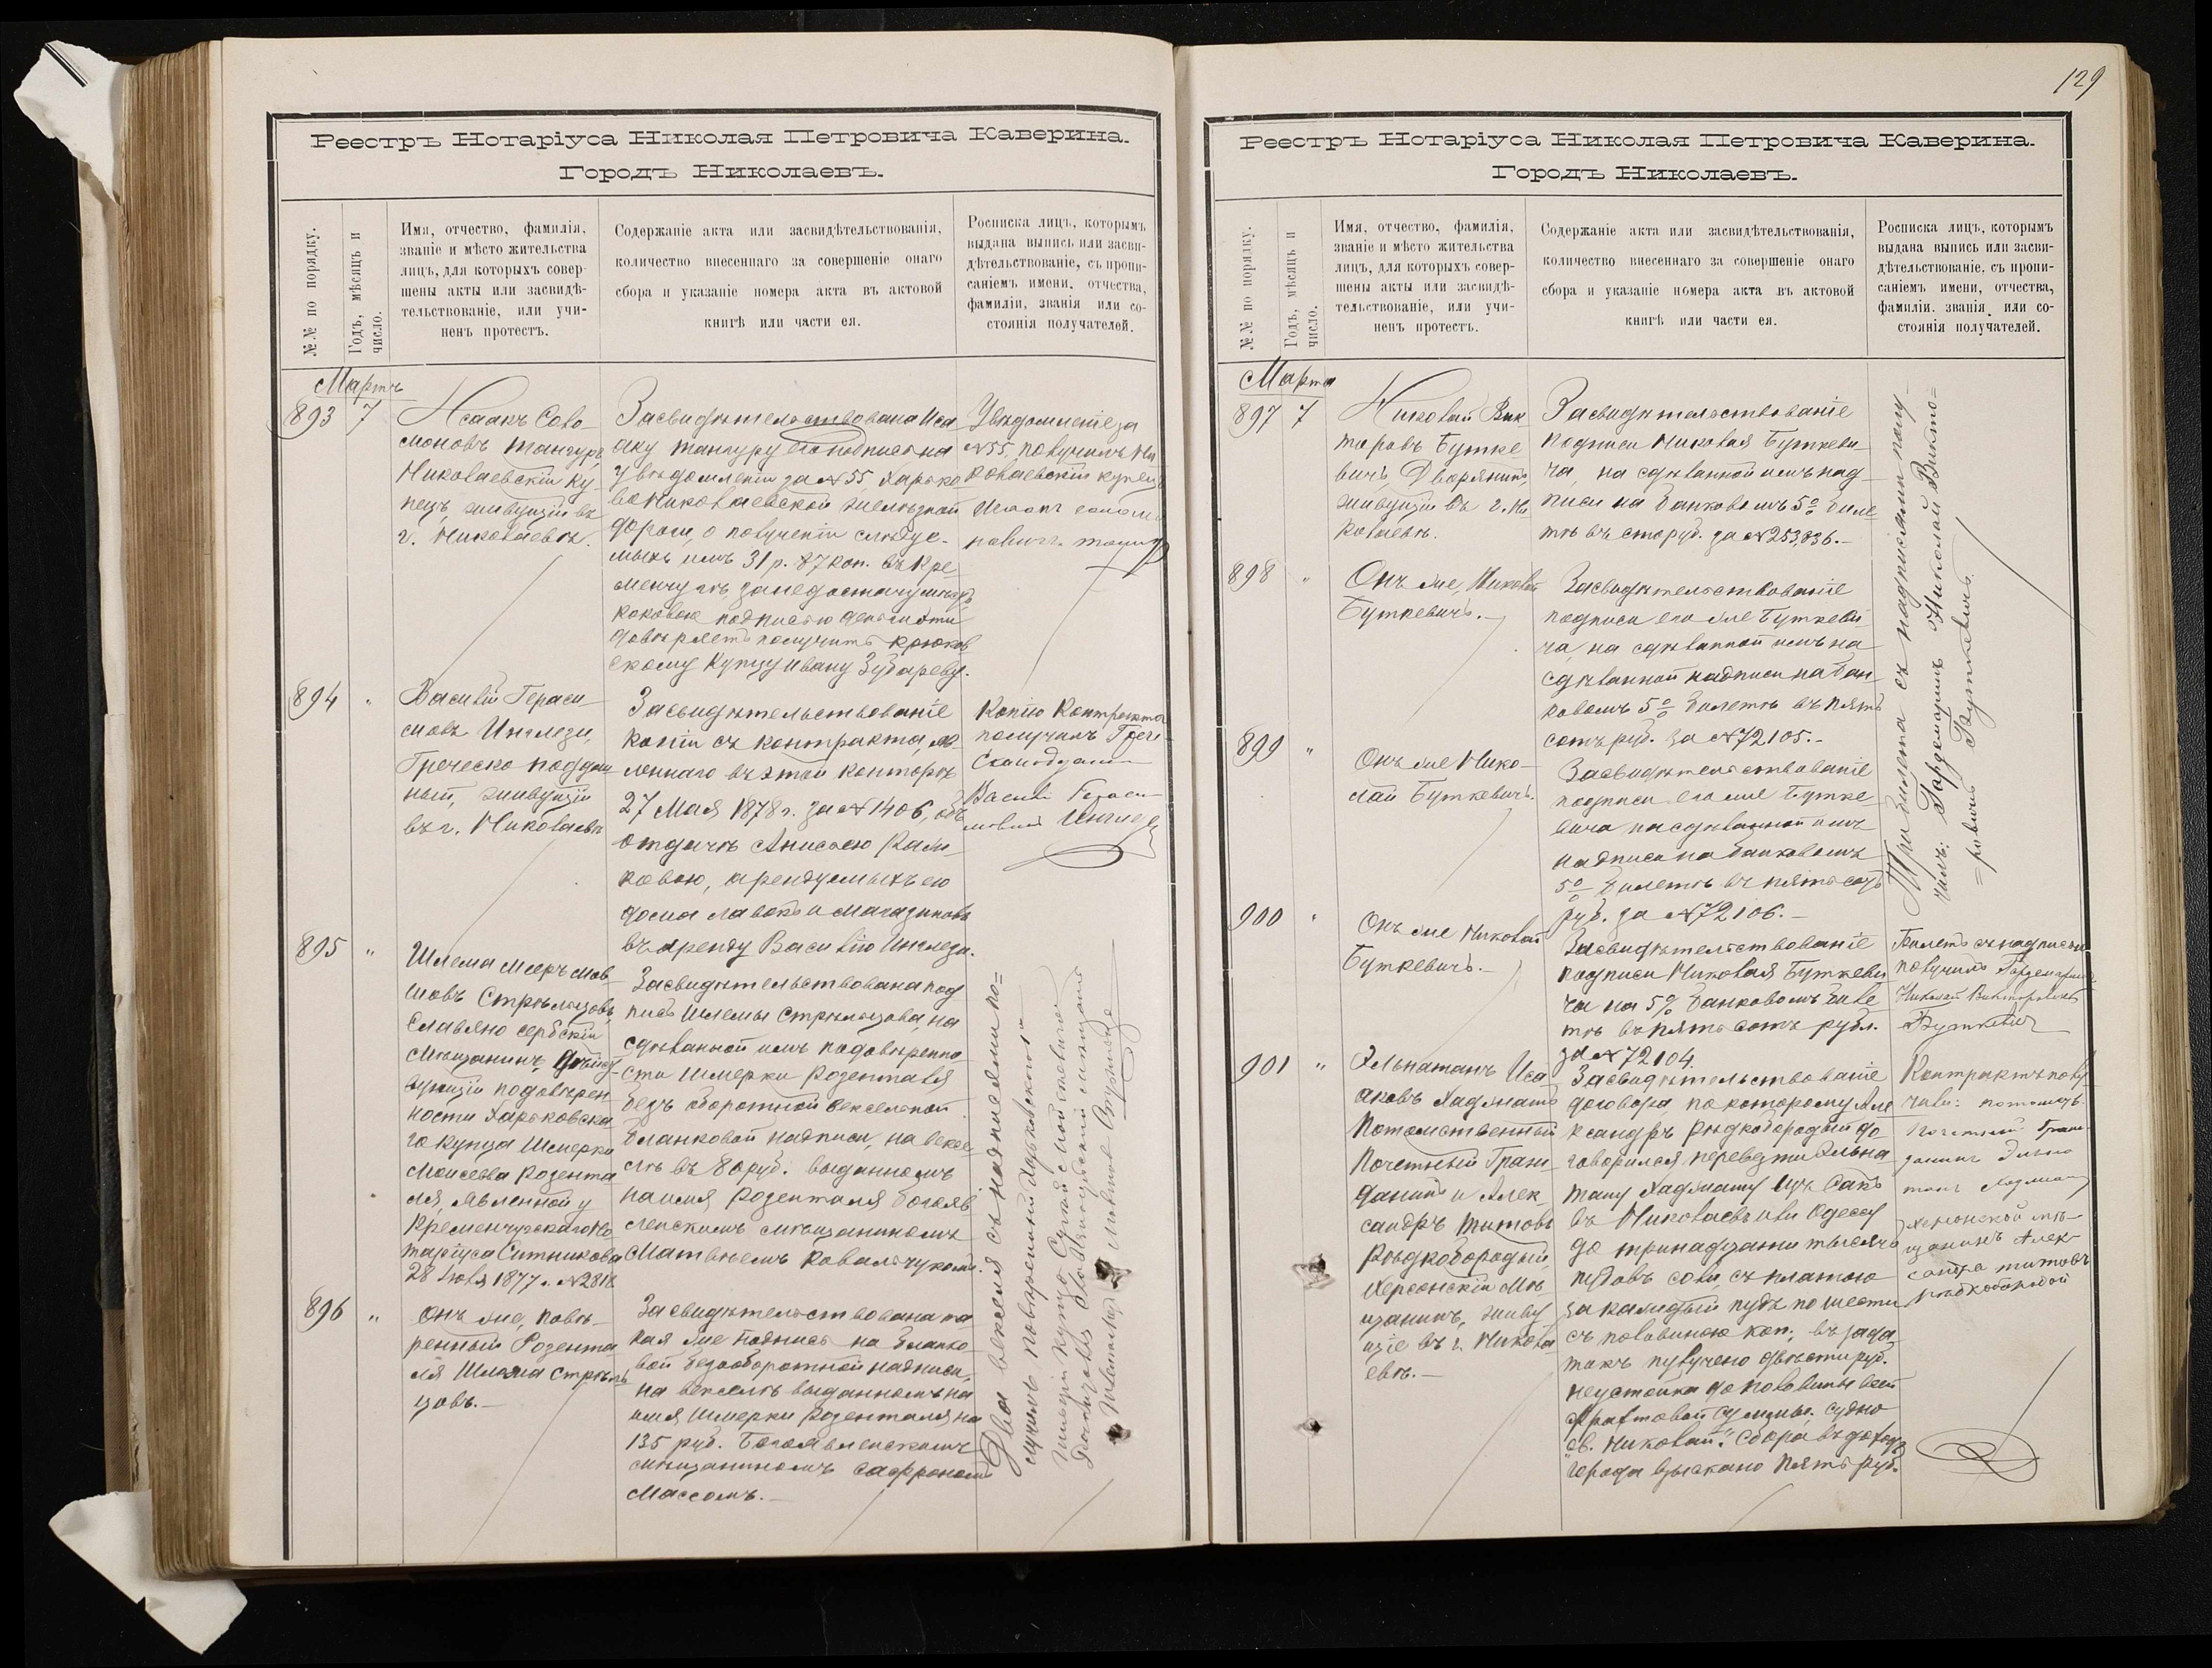 Реестръ Нотаріуса Николая Петровича Каверина.
Городъ Николаевъ.
№№ по порядку.
Годъ, мѣсяцъ и
число.
Имя, отчество, фамилія,
званіе и мѣсто жительства
лицъ, для которыхъ совер-
шены акты или засвидѣ-
тельствованіе, или учи-
ненъ протестъ.
Содержаніе акта или засвидѣтельствованія,
количество внесеннаго за совершеніе онаго
сбора и указаніе номера акта въ актовой
книгѣ или части ея.
Росписка лицъ, которымъ
выдана выпись или засви-
дѣтельствованіе, съ пропи-
саніемъ имени, отчества,
фамиліи, званія или со-
стоянія получателей.
Мартъ
893 7
Исаакъ Соло-
моновъ Тангуръ,
Николаевскій ку-
пецъ, живущій въ
г. Николаевѣ.
Засвидѣтельствована Иса
аку Тангуру его подпись на
увѣдомленіи за №55, Харько
во Николаевской желѣзной
дороги, о полученіи слѣдуе-
мыхъ имъ 31 р. 87 коп. въ Кре
менчугѣ,
каковою подписью деньги эти
довѣряетъ получить крюков
скому купцу Ивану Зубареву.
Увѣдомленіе за
№55, получилъ Ни
колаевскій купецъ
Исаакъ Соломо
894 "
Василій Гераси-
мовъ Инглези,
Греческо поддан
ный, живущій
въ г. Николаевѣ
Засвидѣтельствованіе
копіи съ контракта, яв-
леннаго въ этой конторѣ
27 Мая 1878 г. за №1406, объ
отдачѣ Анисьею Калы
ковою, арендуемыхъ ею
дома лавокъ и магазиновъ
въ аренду Василію Инглези.
Копію контракта
получилъ Грече
Скоподдани
Василій Гераси
мовичъ Инглези
895 "
Шлема Мееръ Мов-
шовъ Стрѣльцовъ,
Славяно сербскій
мѣщанинъ, дѣйст
вующій по довѣрен
ности Харьковска
го купца Шмерки
Моисеева Розента
ля, явленной у
Кременчугскаго Но
таріуса Ситникова
28 Іюля 1877 г. №2816
Засвидѣтельствована под
пись Шлемы Стрѣльцова, на
сдѣланной имъ по довѣренно
сти Шмерки Розенталя
безъ оборотной вексельной
бланковой надписи, на вексе
лѣ въ 80 руб. выданномъ
на имя Розенталя Богояв
ленскимъ мѣщаниномъ
Матвѣемъ Ковальчукомъ.
896 "
Онъ же, повѣ-
ренный Розента
ля Шлема Стрѣль
цовъ.-
Засвидѣтельствована та
кая же подпись на бланко
вой безъоборотной надписи,
на векселѣ выданномъ на
имя Шмерки Розенталя на
135 руб. Богоявленскимъ
мѣщаниномъ Сафрономъ
Массомъ.-
Два векселя съ надписями по=
лучилъ повѣренный Харьковского
мѣщанинъ
Реестръ Нотаріуса Николая Петровича Каверина.
Городъ Николаевъ.
129
№№ по порядку.
Годъ, мѣсяцъ и
число.
Имя, отчество, фамилія,
званіе и мѣсто жительства
лицъ, для которыхъ совер-
шены акты или засвидѣ-
тельствованіе, или учи-
ненъ протестъ.
Содержаніе акта или засвидѣтельствованія,
количество внесеннаго за совершеніе онаго
сбора и указаніе номера акта въ актовой
книгѣ или части ея.
Росписка лицъ, которымъ
выдана выпись или засви-
дѣтельствованіе, съ пропи-
саніемъ имени, отчества,
фамиліи, званія или со-
стоянія получателей.
Марта
897 7
Николай Вик
торовъ Бутке
вичъ, Дворянинъ,
живущій въ г. Ни
колаевѣ.
Засвидѣтельствованіе
подписи Николая Буткеви
ча, на сдѣланной имъ над-
писи на банковомъ 5% биле
тѣ въ сто руб. за №253,836.-
898 "
Онъ же, Николай
Буткевичъ.-
Засвидѣтельствованіе
подписи его же Буткеви
ча, на сдѣланной имъ на
сдѣланной надписи на бан
ковомъ 5% билетѣ въ пять
сотъ руб. за №72105.-
899 "
Онъ же Нико-
лай Буткевичъ.
Засвидѣтельствованіе
подписи его же Бутке-
вича на сдѣланной имъ
надписи на банковомъ
5% билетѣ въ пятьсотъ
руб. за №72106.-
Три билета съ надписями полу-
чилъ: Гардемаринъ Николай Викто=
=ровичъ Буткевичъ.
900 "
Онъ же Николай
Буткевичъ.-
Засвидѣтельствованіе
подписи Николая Буткеви
ча на 5% банковомъ биле
тѣ въ пятьсотъ рубл.
за №72104.
Билетъ съ надписью
получилъ Гардемаринъ
Николай Викторовичъ
Буткевичъ
901 "
Эльнатанъ Иса
аковъ Хаджнашъ
Потомственный
Почетный Граж-
данинъ и Алек-
сандръ Титовъ
Рѣдкобородый,
Херсонскій Мѣ-
щанинъ, живу
щіе въ г. Никола
евѣ.-
Засвидѣтельствованіе
договора, по которому Але
ксандръ Рѣдкобородый до-
говорился перевезти Эльна-
тану Хаджнашу изъ Сакъ
въ Николаевъ или Одессу
до тринадцати тысячъ
пудовъ соли съ платою
за каждый пудъ по шести
съ половиною коп., въ зада
токъ получено двѣсти руб.
неустойка до половины всей
фрахтовой суммы. Судно
„Св. Николай". Сбора въ доходъ
города взыскано пять руб.
Контрактъ полу
чили: потомств.
Почетный Граж
данинъ Эльна
танъ
Херсонской мѣ-
щанинъ Алек-
сандра Титовъ
Рѣдкобородой